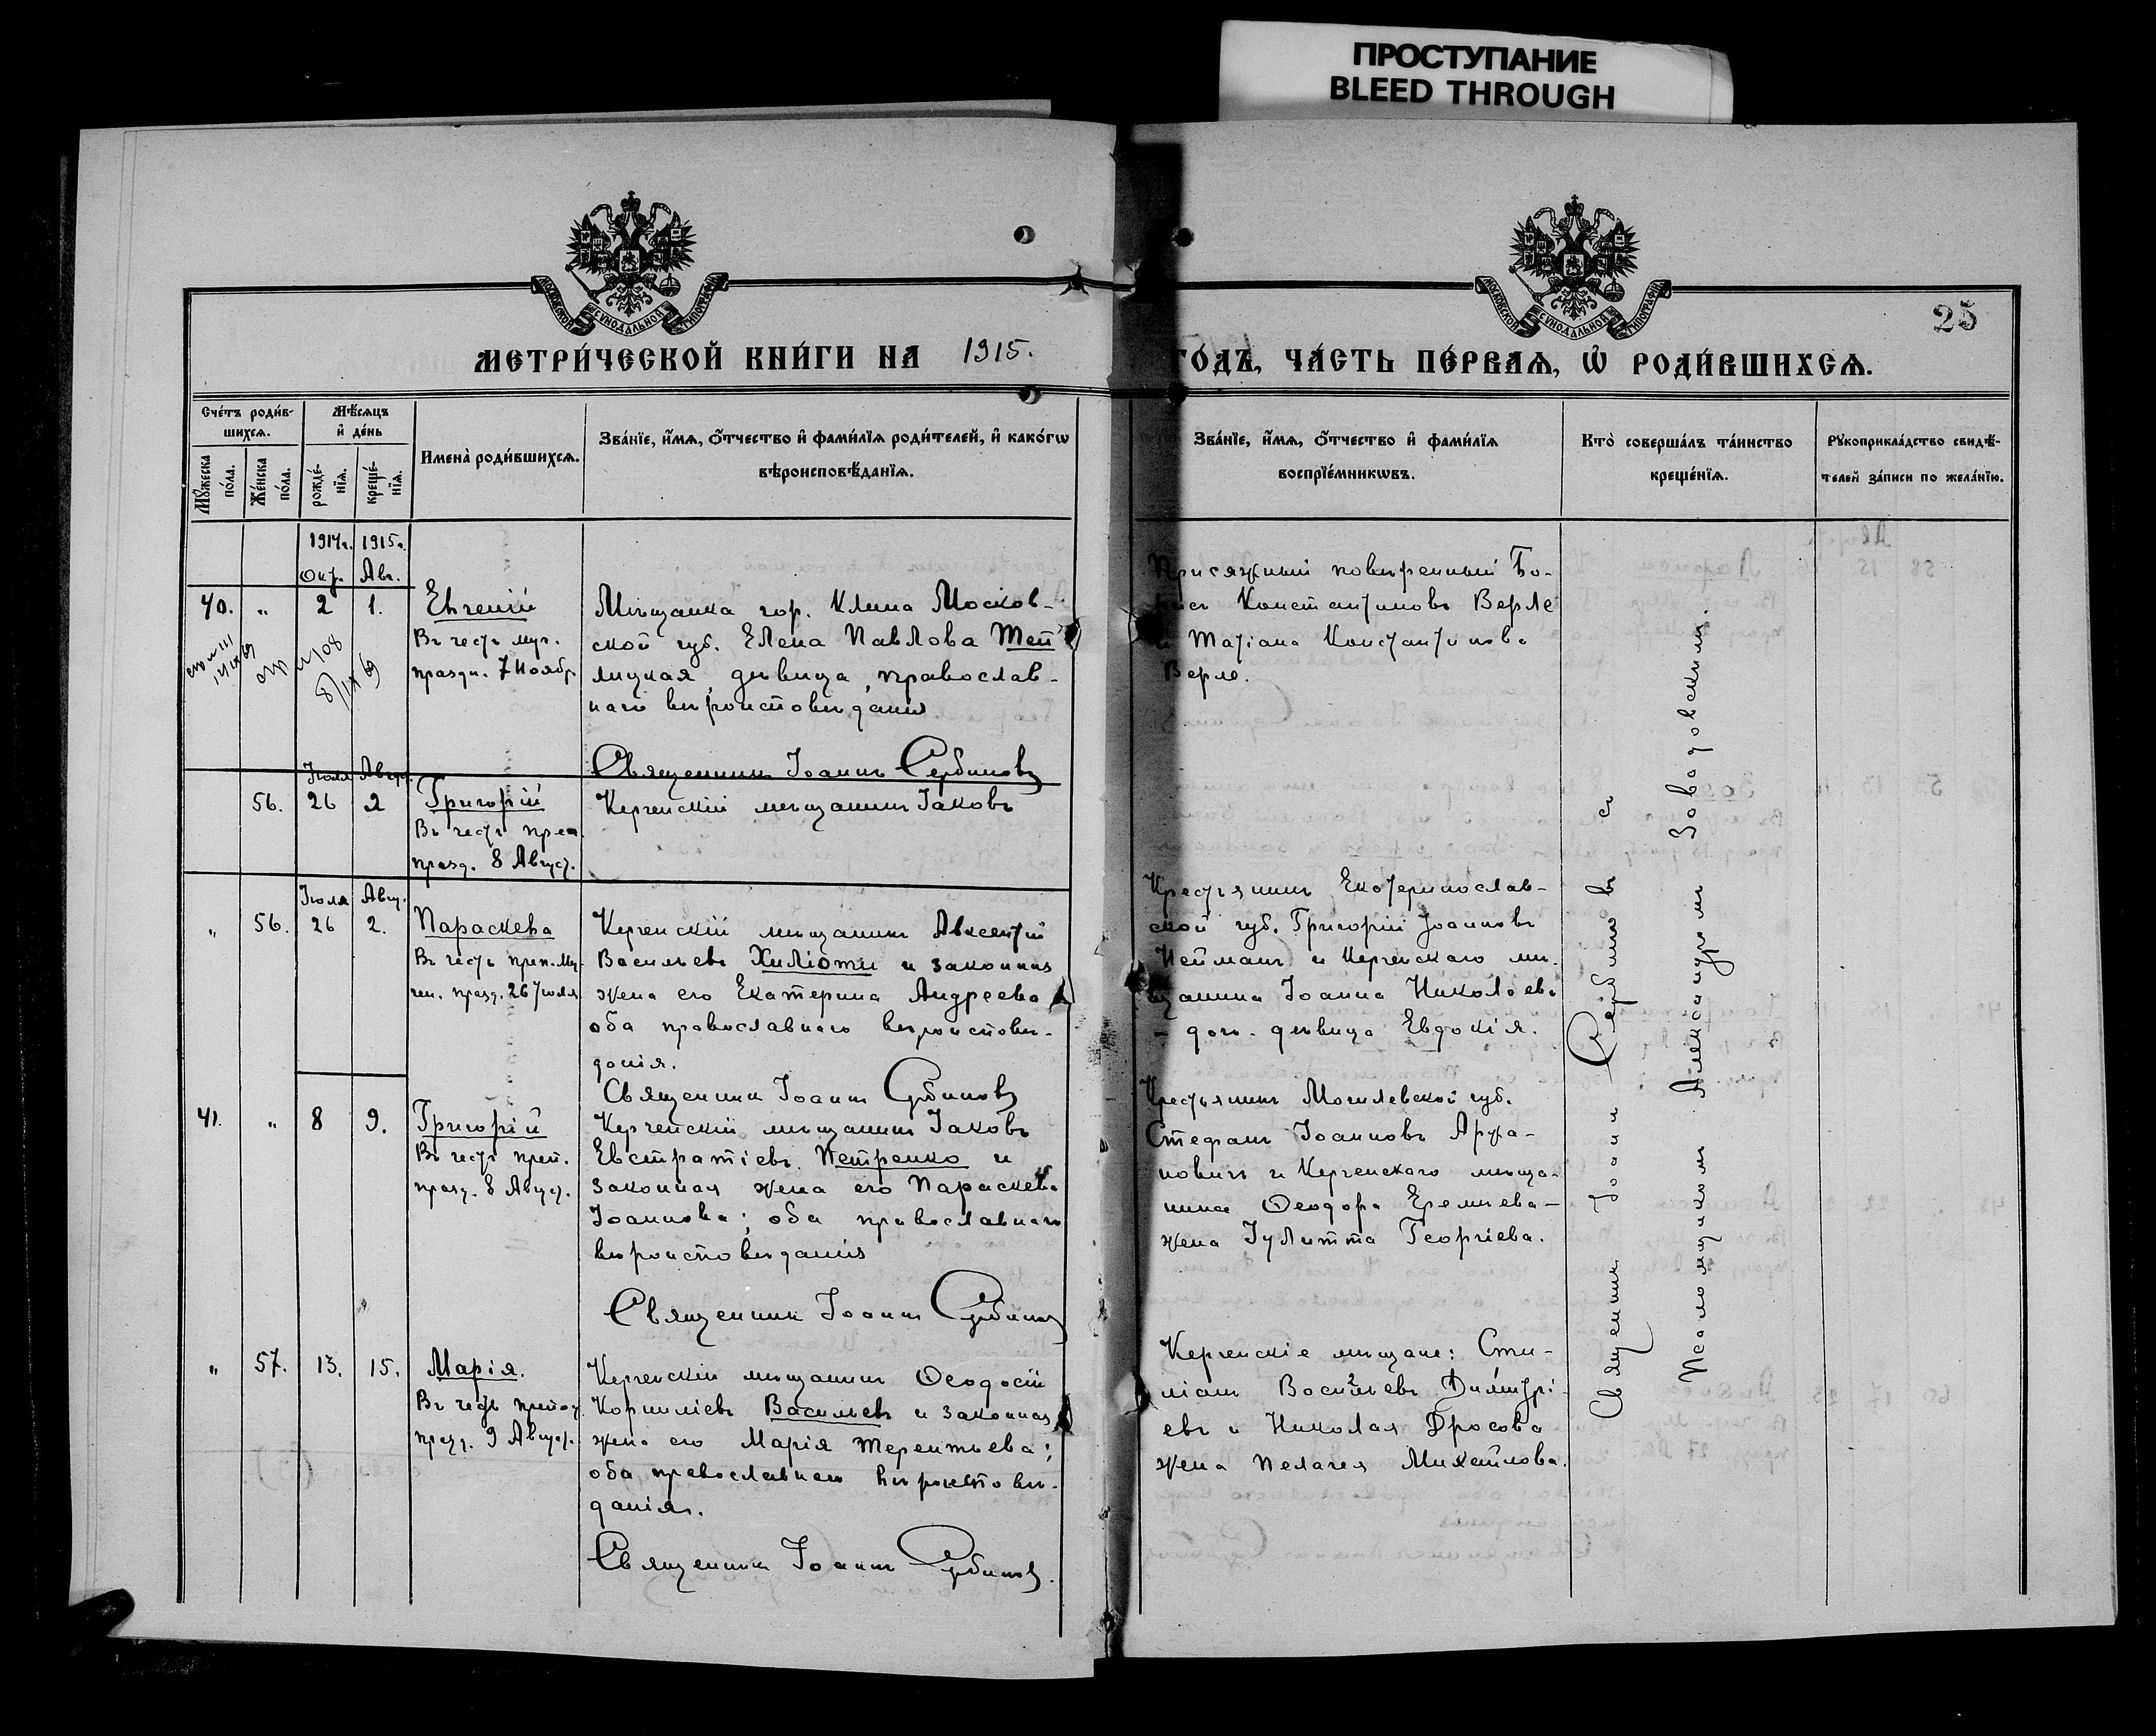 ПРОСТУПАНИЕ
BLEED THROUGH
МОСКОВСКОЙ СѴНОДАЛЬНОЙ ТИПОГРАФІИ
МОСКОВСКОЙ СѴНОДАЛЬНОЙ ТИПОГРАФІИ
25
МЕТРИ́ЧЕСКОЙ КНИ́ГИ НА 1915.
ГО́ДЪ, ЧА́СТЬ ПЕ́РВАѦ, Ѡ҆ РОДИ́ВШИХСѦ.
Сче́тъ роди́в-
шихсѧ.
Мꙋ́жеска
по́ла.
Же́нска
по́ла.
Мѣ́сѧцъ
и҆ де́нь
рожде́-
нїѧ.
креще́-
нїѧ.
Имена̀ роди́вшихсѧ.
Зва́нїе, и҆́мѧ, ѻ҆́тчество и҆ фами́лїѧ роди́телей, и҆ како́гѡ
вѣроисповѣ́данїѧ.
Зва́нїе, и҆́мѧ, ѻ҆́тчество и҆ фами́лїѧ
воспрїе́мникѡвъ.
Кто̀ соверша́лъ та́инство
креще́нїѧ.
Рꙋкоприкла́дство свидѣ́-
телей за́писи по жела́нїю.
1914г. 1915г.
Окт. Авг.
40. " 2 1.
Евгеній
Въ честь муч.
праздн. 7 Ноябр.
Мѣщанка гор. Клина Москов-
ской губ. Елена Павлова
лицкая, дѣвица, православ-
наго вѣроисповѣданія
Священникъ Іоаннъ Сербиновъ
Присяжный повѣренный Бо-
рисъ Константиновъ Верле
и Татіана Константинова
Верле.
Іюля Авгус.
56. 26 2
Григорій
Въ честь преп.
празд. 8 Август.
Керченскій мѣщанинъ Іаковъ
Іюля Авгу.
" 56. 26 2.
Параскева
Въ честь преп. Му-
чен. празд. 26 Іюля
Керченскій мѣщанинъ Авксентій
Васильевъ Хиліоти и законная
жена его Екатерина Андреева
оба православнаго вѣроисповѣ-
данія.
Священникъ Іоаннъ Сербиновъ
Крестьянинъ Екатеринослав-
ской губ. Григорій Іоанновъ
Нейманъ и Керченскаго мѣ-
щанина Іоанна Николаева
- дочь - дѣвица Евдокія.
41. " 8 9.
Григорій
Въ честь преп.
празд. 8 Август.
Керченскій мѣщанинъ Іаковъ
Евстратіевъ Петренко и
законная жена его Параскева
Іоаннова; оба православнаго
вѣроисповѣданія
Священникъ Іоаннъ Сербиновъ
Крестьянинъ Могилевской губ.
Стефанъ Іоанновъ
и Керченскаго мѣща-
нина Ѳеодора Еремѣева -
жена Іулитта Георгіева.
" 57. 13. 15.
Марія.
Въ честь
празд. 9 Август.
Керченскій мѣщанинъ Ѳеодосій
Корниліевъ Васильевъ и законная
жена его Марія Терентьева;
оба православнаго вѣроисповѣ-
данія.
Священникъ Іоаннъ Сербиновъ.
Керченскіе мѣщане: Сти-
ліанъ Васильевъ Димитрі-
евъ и Николая Дросова
жена Пелагея Михайлова.
Священникъ Іоаннъ Сербиновъ съ
Псаломщикомъ Александромъ Завадовскимъ.